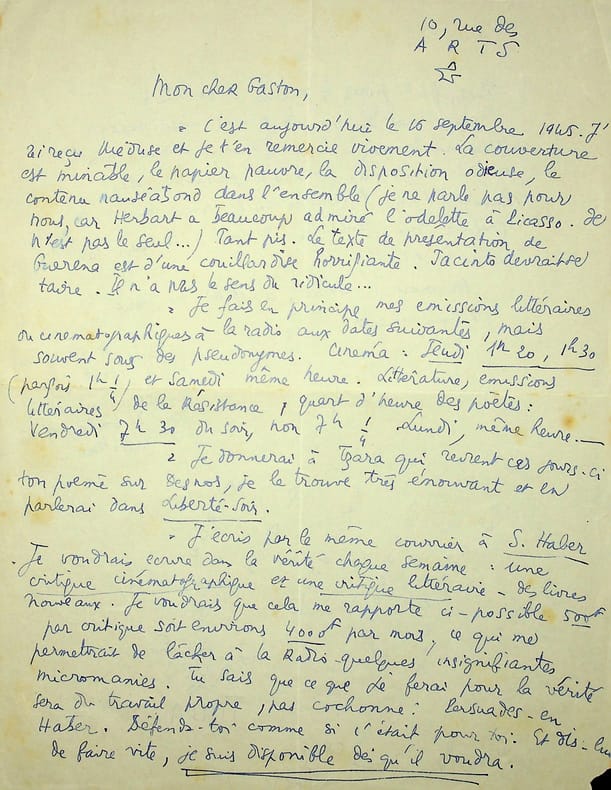 10, rue des
ARTS
Mon cher Gaston,
= C'est aujourd'hui le 16 septembre 1945. J'
ai reçu Méduse et je t'en remercie vivement. La couverture
est minable, le papier pauvre, la disposition odieuse, le
contenu nauséabond dans l'ensemble (je ne parle pas pour
nous, car Herbart a beaucoup admiré l'odelette à Picasso. Ce
n'est pas le seul...) Tant pis. Le texte de présentation de
Guerena est d'une couillardise horrifiante. Jacinto devrait se
taire. Il n'a pas le sens du ridicule...
= Je fais en principe mes emissions littéraires
ou cinematographiques à la radio aux dates suivantes, mais
souvent sous des pseudonymes. Cinema : Jeudi 1h20, 1h30
(parfois 1h 1/4) et Samedi même heure. Littérature, emissions
littéraires de la Résistance, quart d'heure des poètes :
Vendredi 7h30 du soir, non 7h 1/4. Lundi, même heure. —
= Je donnerai à Tzara qui revient ces jours-ci
ton poème sur Desnos, je le trouve très émouvant et en
parlerai dans Liberté-Soir.
= J'écris par le même courrier à S. Haber
. Je voudrais ecrire dans la vérité chaque semaine : une
critique cinématographique et une critique littéraire - des livres
nouveaux. Je voudrais que cela me rapporte ci-possible 500f
par critique soit environs 4000f par mois, ce qui me
permettrait de lâcher à la Radio quelques insignifiantes
micromanies. Tu sais que ce que je ferai pour la vérité
sera du travail propre, pas cochonné. Persuades-en
Haber. Défends-toi comme si c'était pour toi. Et dis-lui
de faire vite, je suis disponible dès qu'il voudra.